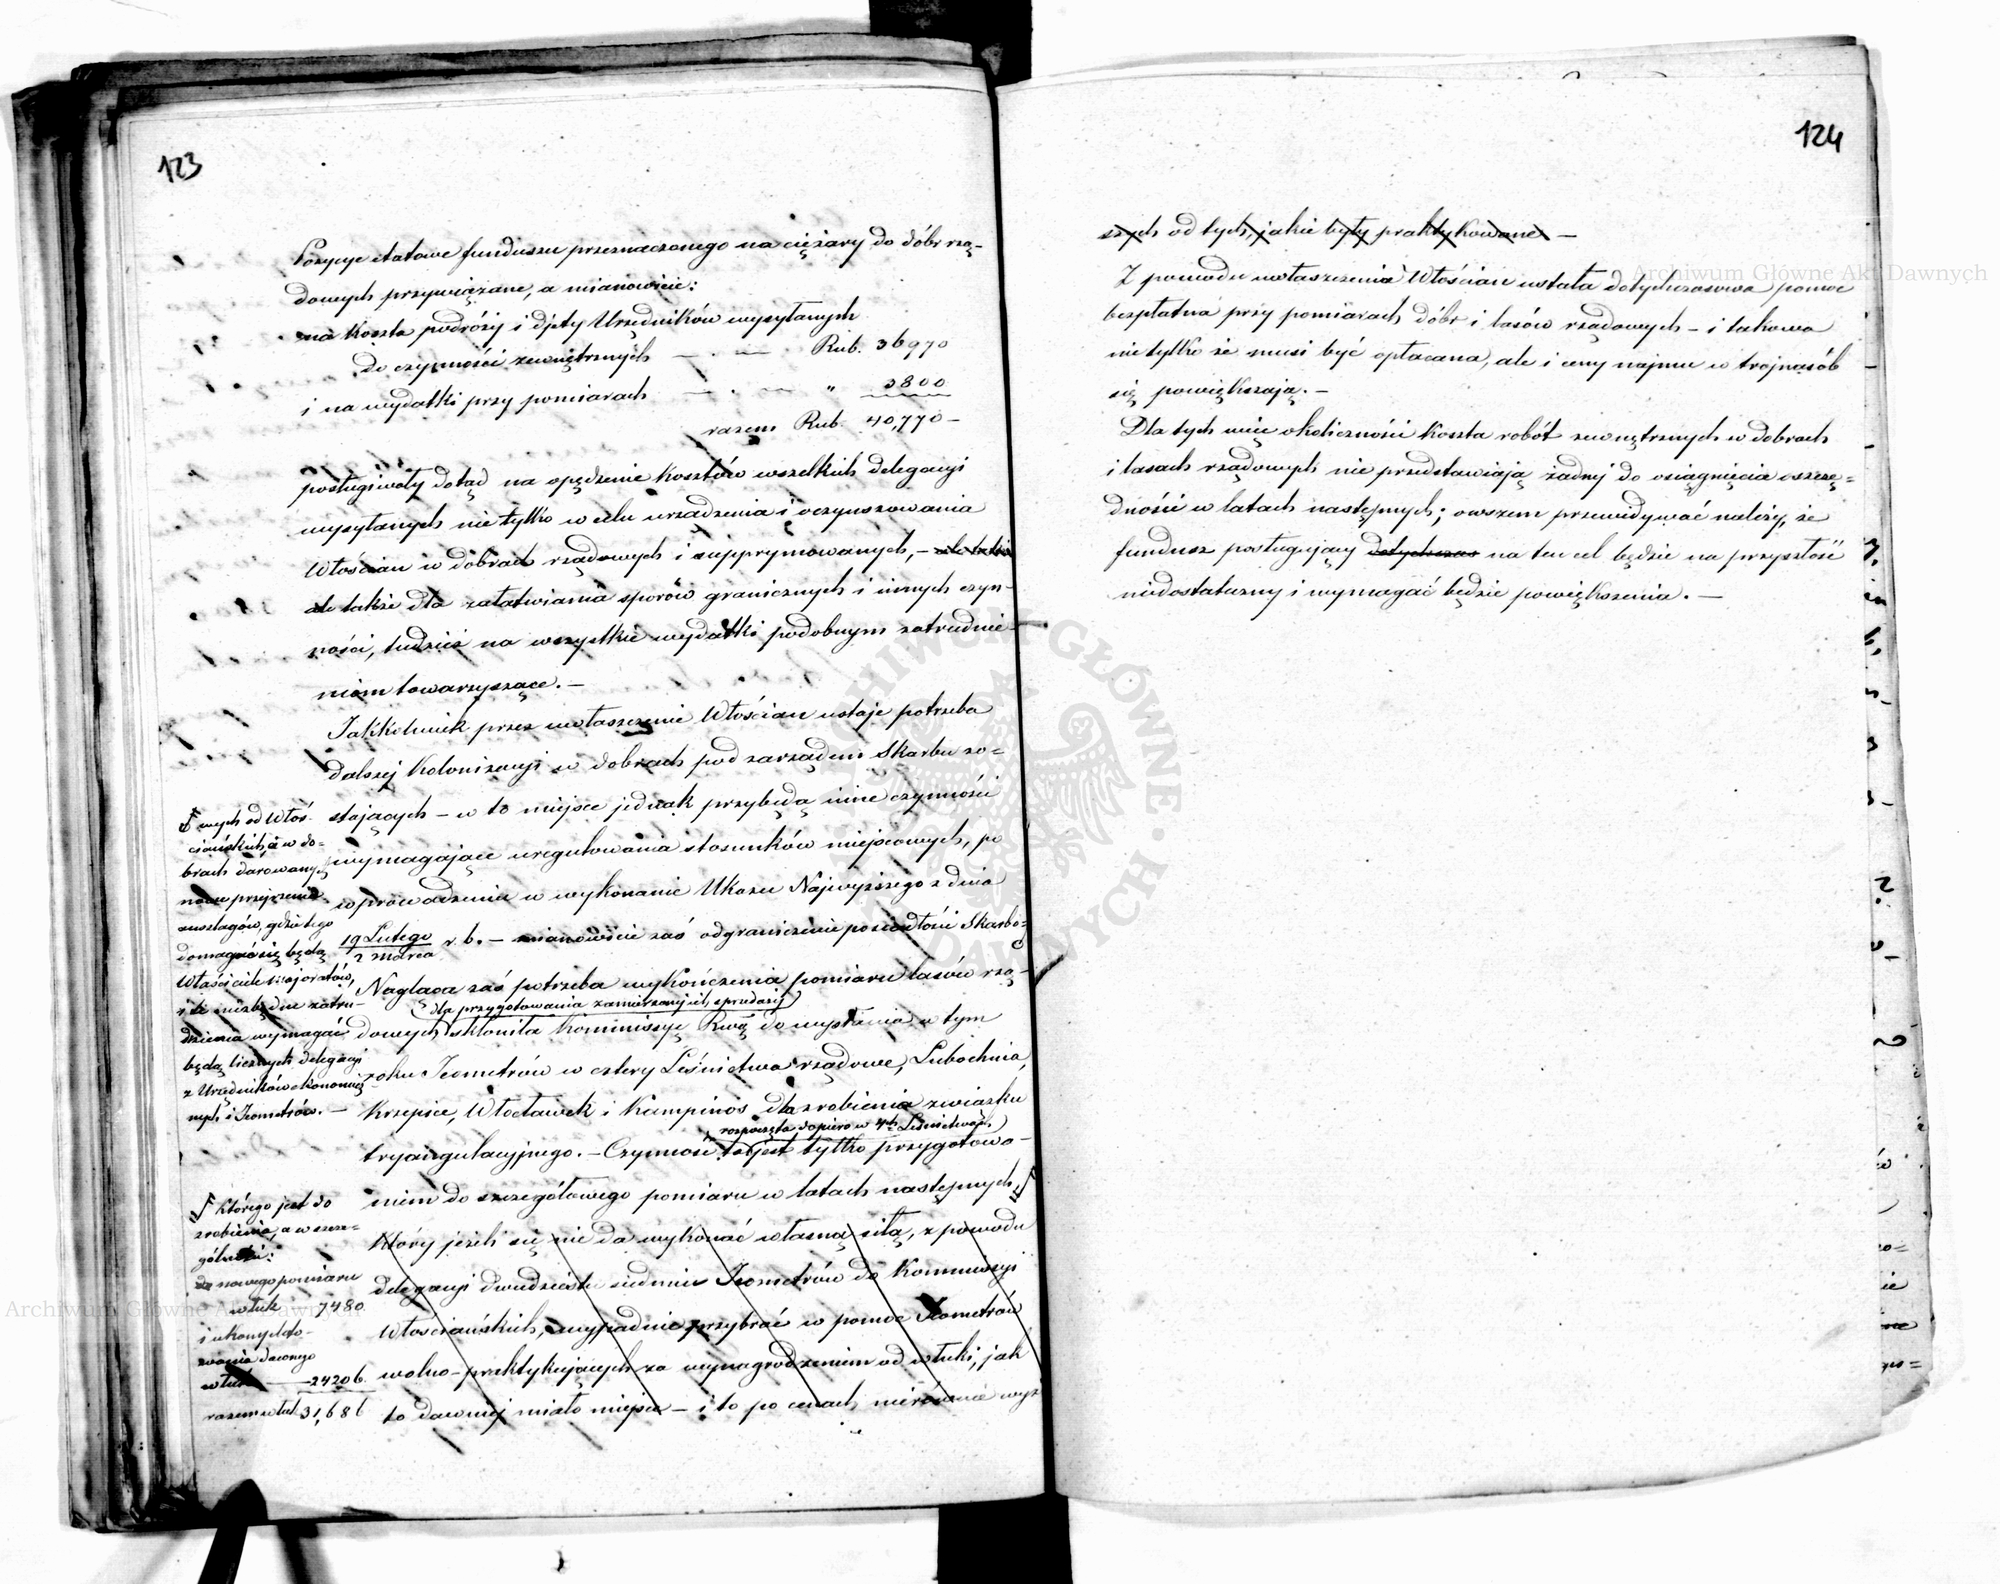 123
Pozycye etatowe funduszu przeznaczonego na ciężary do dóbr rzą-
dowych przywiązane, a mianowicie:
na koszta podróży i djety Urzędników wysyłanych
do czynności zewnętrznych — . — Rub. 36970
i na wydatki przy pomiarach — . — " 3800
razem Rub. 40,770 —
posługiwały dotąd na opędzenie kosztów wszelkich delegacyi
wysyłanych nie tylko w celu urządzenia i oczynszowania
Włościan w dobrach rządowych i supprymowanych, — ale także
ale także dla załatwiania sporów granicznych i innych czyn-
ności, tudzież na wszystkie wydatki podobnym zatrudnie-
niom towarzyszące. —
Jakkolwiek przez uwłaszczenie Włościan ustaje potrzeba
dalszej kolonizacyi w dobrach pod zarządem Skarbu zo=
stających — w to miejsce jednak przybędą inne czynności
wymagające uregulowania stosunków miejscowych, po
wprowadzeniu w wykonanie Ukazu Najwyższego z dnia
19 Lutego
2 Marca
r. b. — mianowicie zaś odgraniczenie posiadłości Skarbo=
wych od Włoś-
ciańskich, a w do-
brach darowanych
nowe przejrzenie
anszlagów, gdzie tego
domagać się będą
Właściciele majoratów,
i te niezbędne zatru-
dnienia wymagać
będą licznych delegacyi
z Urzędników ekonomicz-
nych i Jeometrów. —
Nagląca zaś potrzeba wykończenia pomiaru lasów rzą-
(dla przygotowania zamierzonej ich sprzedaży)
dowych skłoniła Kommissyę Rwą do wysłania w tym
roku Jeometrów w cztery Leśnictwa rządowe, Lubochnia,
Krzepice, Włocławek i Kampinos dla zrobienia związku
rozpoczęta dopiero w 4ch Leśnictwach
tryangulacyjnego. — Czynność ta jest tylko przygotowa-
niem do szczegółowego pomiaru w latach następnych,
którego jest do
zrobienia, a w szcze-
gólności:
do nowego pomiaru
włók 7480
i ukompleto-
wania dawnego
włók — 24206
razem włók 31,686
który jeżeli się nie da wykonać własną siłą, z powodu
delegacyi dwudziestu siedmiu Jeometrów do Kommissyi
Włościańskich, wypadnie przybrać w pomoc Jeometrów
wolno-praktykujących za wynagrodzeniem od włóki, jak
to dawniej miało miejsce — i to po cenach nierównie wyż
124
szych od tych, jakie były praktykowane —
Z powodu uwłaszczenia Włościan ustała dotychczasowa pomoc
bezpłatna przy pomiarach dóbr i lasów rządowych — i takowa
nie tylko że musi być opłacana, ale i ceny najmu w trójnasób
się powiększają. —
Dla tych więc okoliczności koszta robót zewnętrznych w dobrach
i lasach rządowych nie przedstawiają żadnej do osiągnięcia oszczę=
dności w latach następnych; owszem przewidywać należy, że
fundusz posługujący dotychczas na ten cel będzie na przyszłość
niedostateczny i wymagać będzie powiększenia. —
Archiwum Główne Akt Dawnych
Archiwum Główne Akt Dawnych
ARCHIWUM GŁÓWNE AKT DAWNYCH